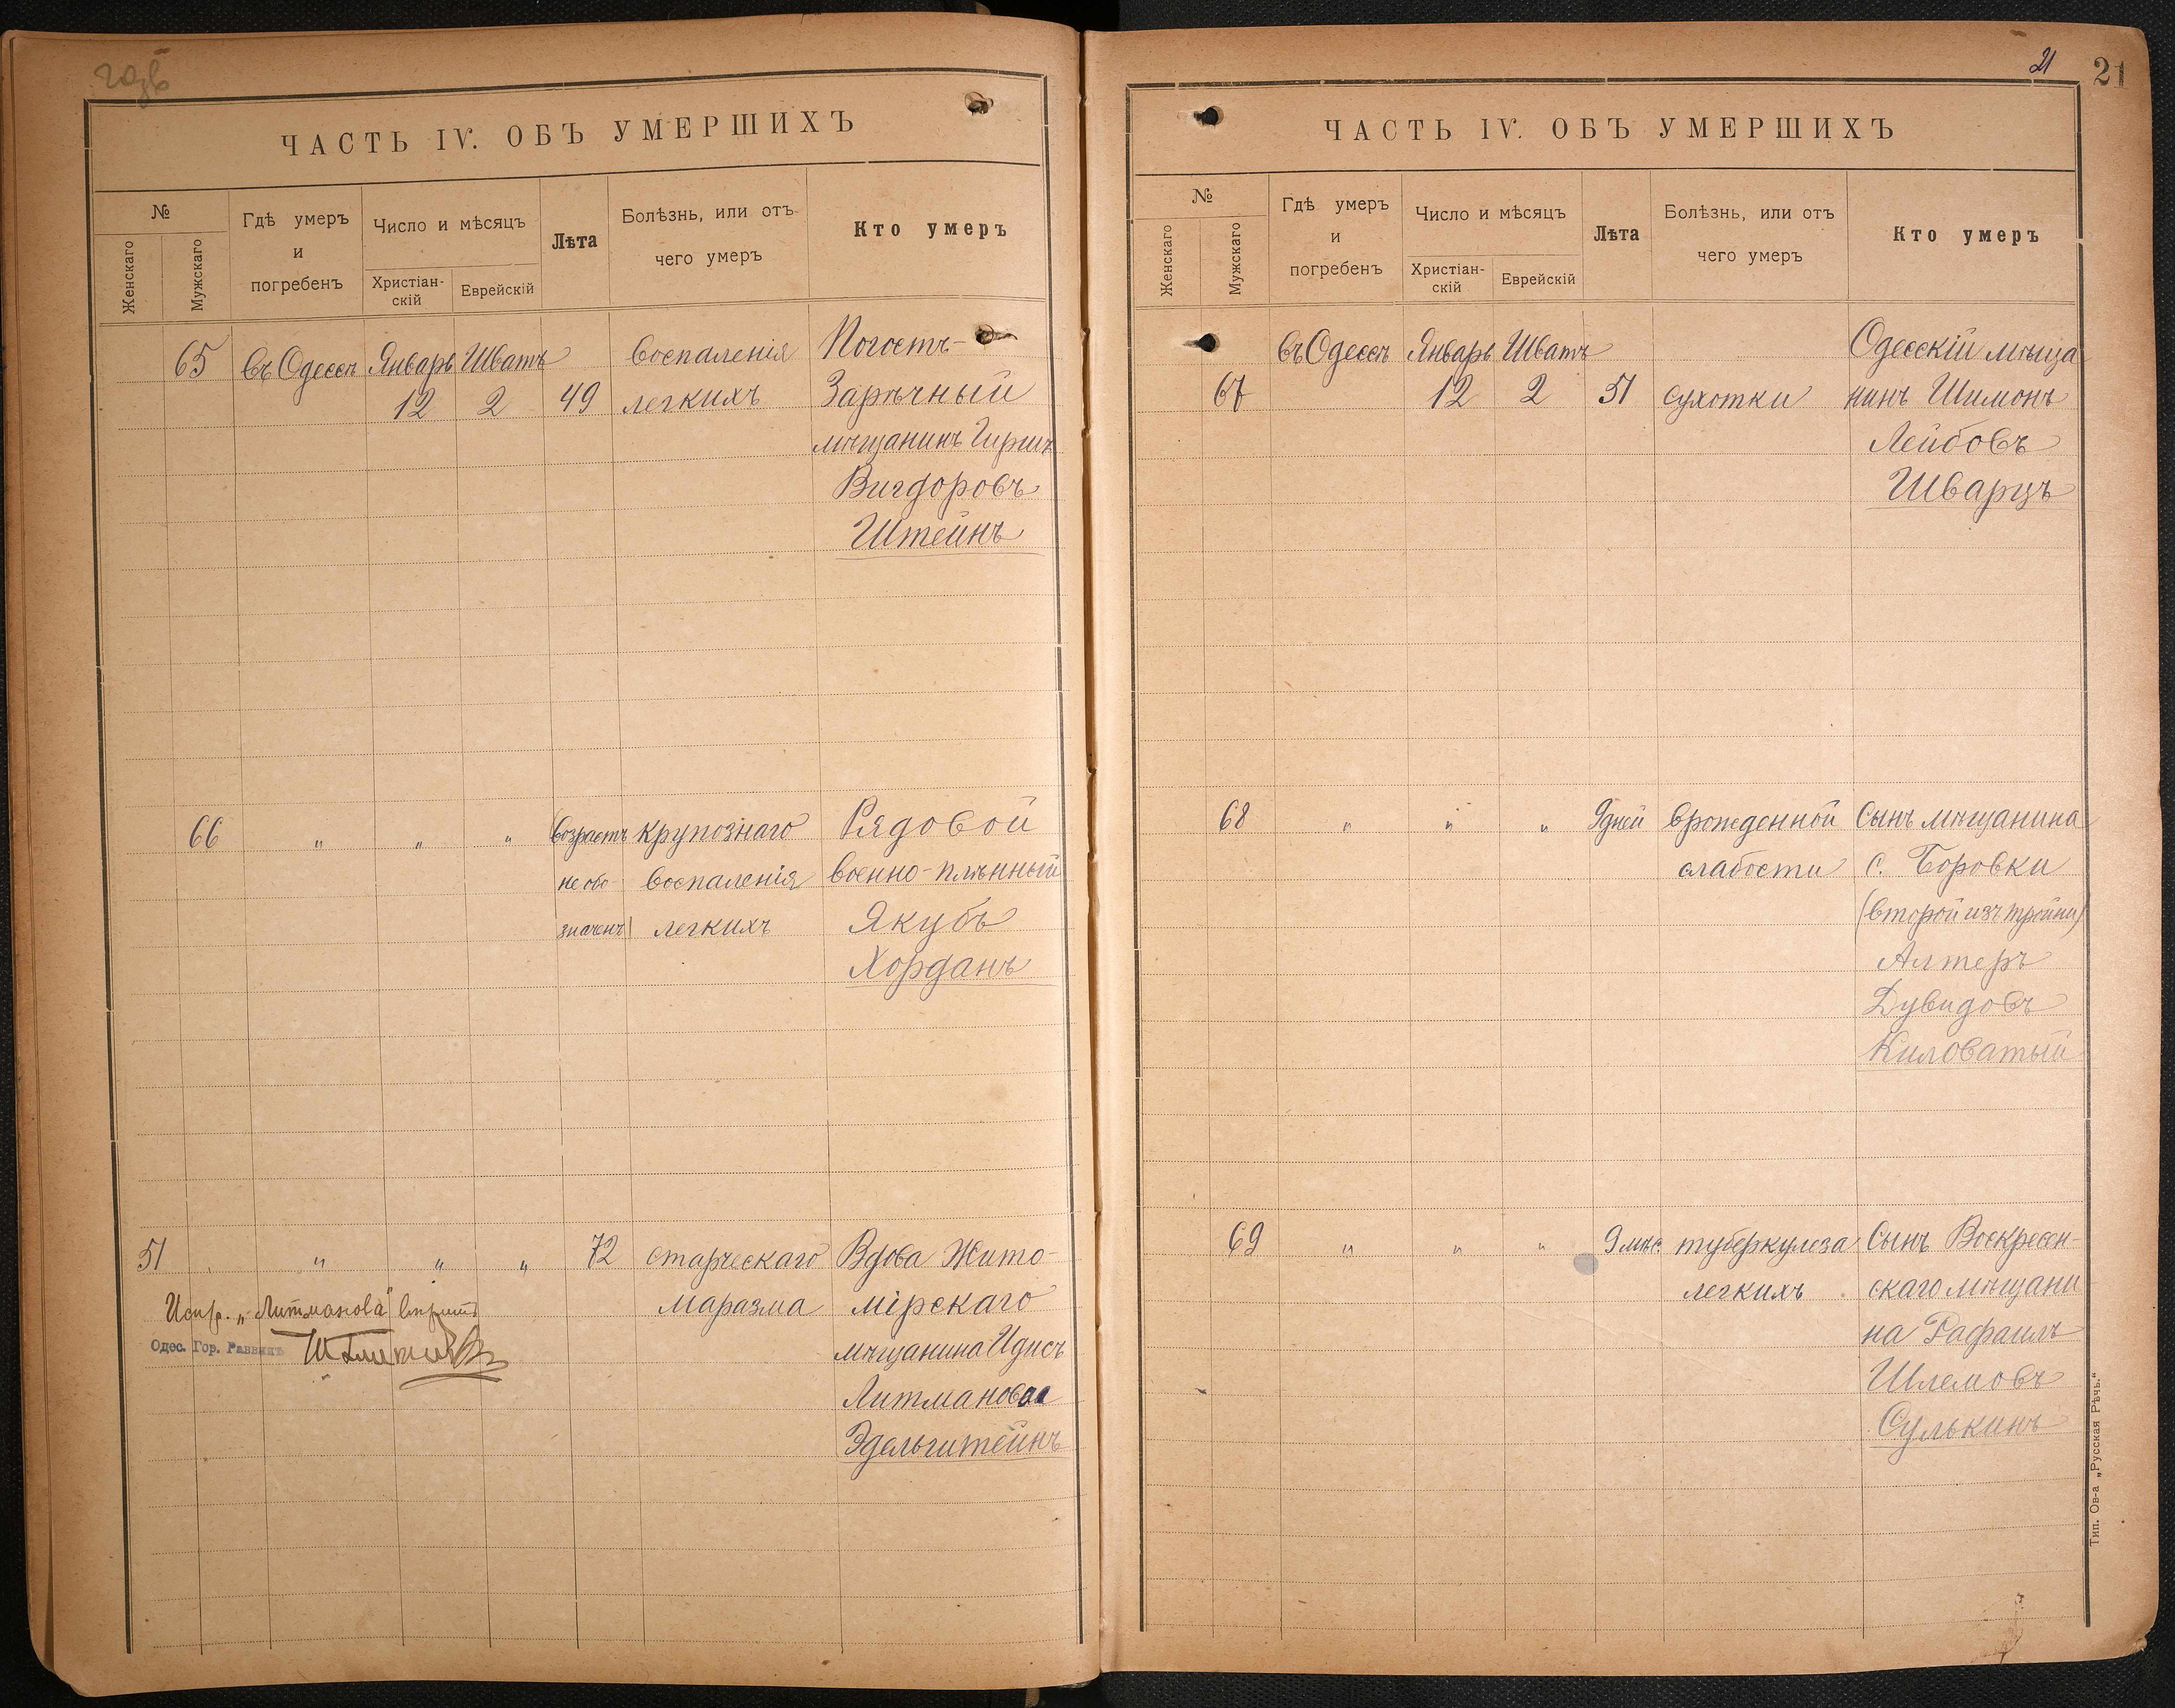 ЧАСТЬ IV. ОБЪ УМЕРШИХЪ
№
Женскаго
Мужскаго
Гдѣ умеръ
и
погребенъ
Число и мѣсяцъ
Христіан-
скій
Еврейскій
Лѣта
Болѣзнь, или отъ
чего умеръ
Кто умеръ
65 въ Одессѣ Январь Шватъ воспаленія Погостъ-
12 2 49 легкихъ Зарѣчный
мѣщанинъ Гиршъ
Вигдоровъ
Штейнъ
66 " " " возрастъ крупознаго Рядовой
не обо- воспаленія военно-плѣнный
значенъ легкихъ Якубъ
Хорданъ
51 " " " 72 старческаго Вдова Жито-
маразма мірскаго
мѣщанина Идисъ
Литманова
Эдельштейнъ
Испр. „Литманова"
Одес. Гор. Раввинъ
21
21
ЧАСТЬ IV. ОБЪ УМЕРШИХЪ
№
Женскаго
Мужскаго
Гдѣ умеръ
и
погребенъ
Число и мѣсяцъ
Христіан-
скій
Еврейскій
Лѣта
Болѣзнь, или отъ
чего умеръ
Кто умеръ
въ Одессѣ Январь Шватъ Одесскій мѣща
67 12 2 51 сухотки нинъ Шимонъ
Лейбовъ
Шварцъ
68 " " " 9 дней врожденной Сынъ мѣщанина
слабости с. Боровки
(второй изъ тройни)
Алтеръ
Дувидовъ
Киловатый
69 " " " 9 мѣс. туберкулеза Сынъ Воскресен-
легкихъ скаго мѣщани
на Рафаилъ
Шлемовъ
Сулькинъ
Тип. Ов-а „Русская Рѣчь."